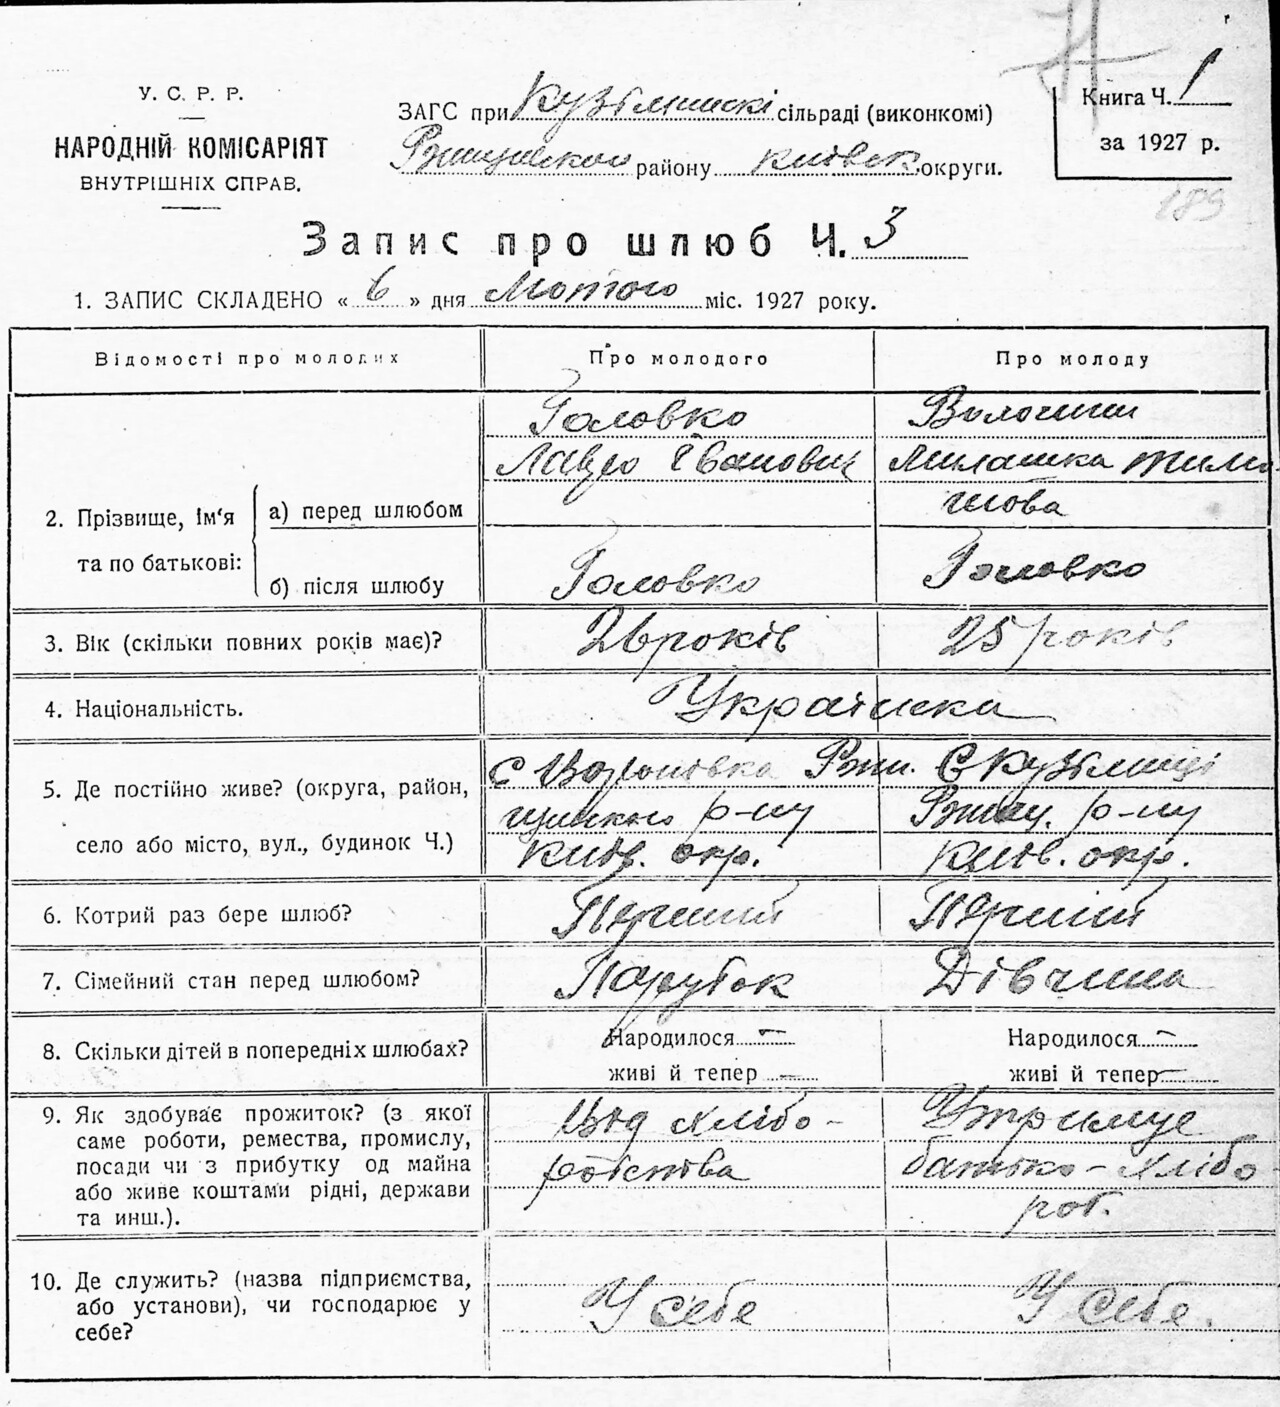 У. С. Р. Р.
НАРОДНІЙ КОМІСАРІЯТ
ВНУТРІШНІХ СПРАВ.
ЗАГС при Кузьминскі сільраді (виконкомі)
Ржищевского району Київск округи.
Книга Ч. 1
за 1927 р.
189
Запис про шлюб Ч. 3
1. ЗАПИС СКЛАДЕНО « 6 » дня Лютого міс. 1927 року.
Відомості про молодих
Про молодого
Про молоду
2. Прізвище, Ім‘я та по батькові:
а) перед шлюбом
Головко
Лавро Іванович
Милашка Тимо
шова
б) після шлюбу
Головко
Головко
3. Вік (скільки повних років має)?
26 років
25 років
4. Національність.
Українска
5. Де постійно живе? (округа, район,
село або місто, вул., будинок Ч.)
с Воронівка Ржи
щивского р-ну
Київ. окр.
С Кузьминці
Ржищ. р-ну
Київ. окр.
6. Котрий раз бере шлюб?
Перший
Перший
7. Сімейний стан перед шлюбом?
Парубок
Дівчина
8. Скільки дітей в попередніх шлюбах?
Народилося —
живі й тепер —
Народилося —
живі й тепер —
9. Як здобуває прожиток? (з якої
саме роботи, ремества, промислу,
посади чи з прибутку од майна
або живе коштами рідні, держави
та инш.).
Від хлібо-
робства
Утримує
батько - хлібо
роб.
10. Де служить? (назва підприємства,
або установи), чи господарює у
себе?
У себе
У себе.